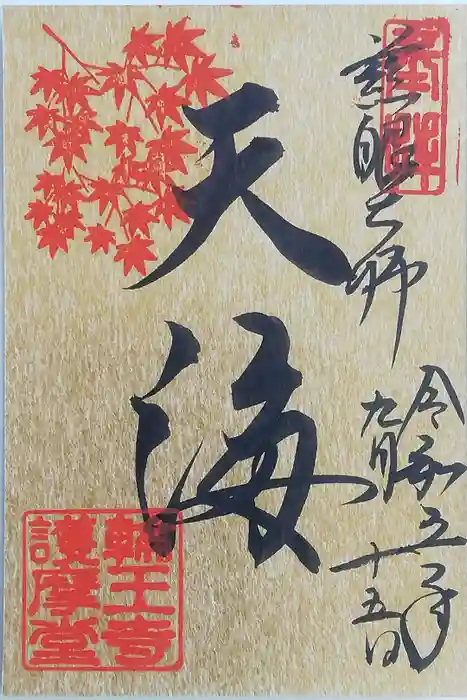 奉拝
慈眼大師
天海
令和五年
九月十五日
輪王寺
護摩堂